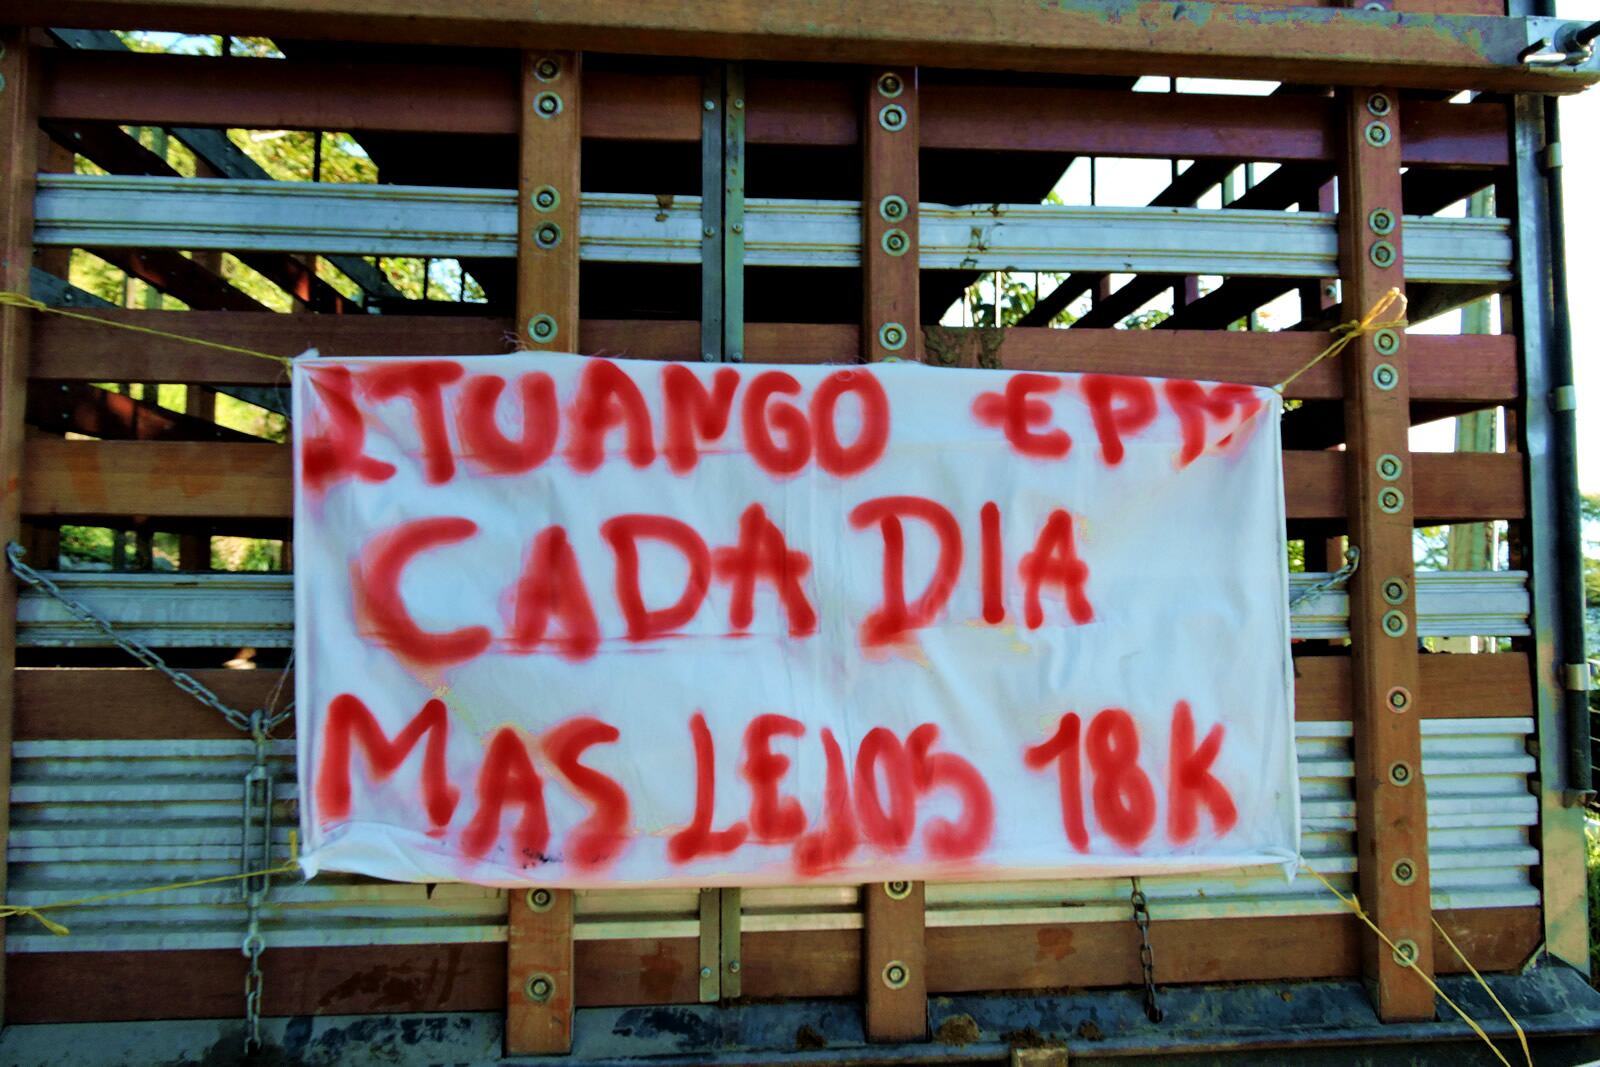 ITUANGO EPM
CADA DIA
MAS LEJOS 18K